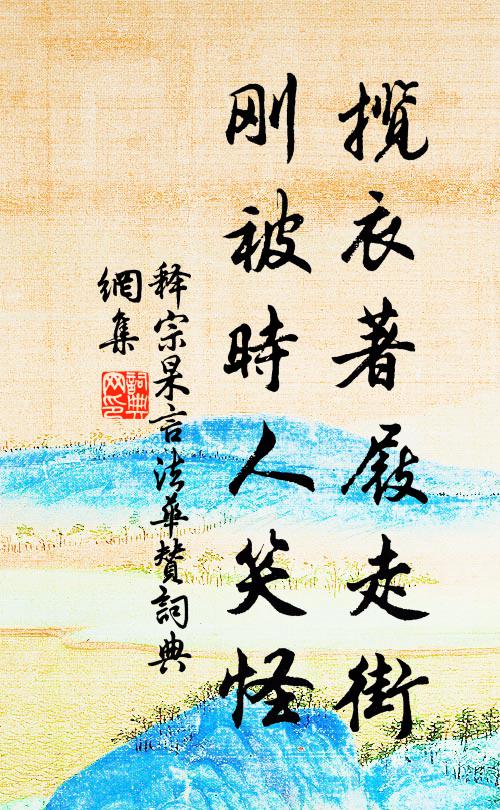 攬衣著屐走街
刚被時人笑怪
释宗杲言法華赞詞典
網集
詞典
网印